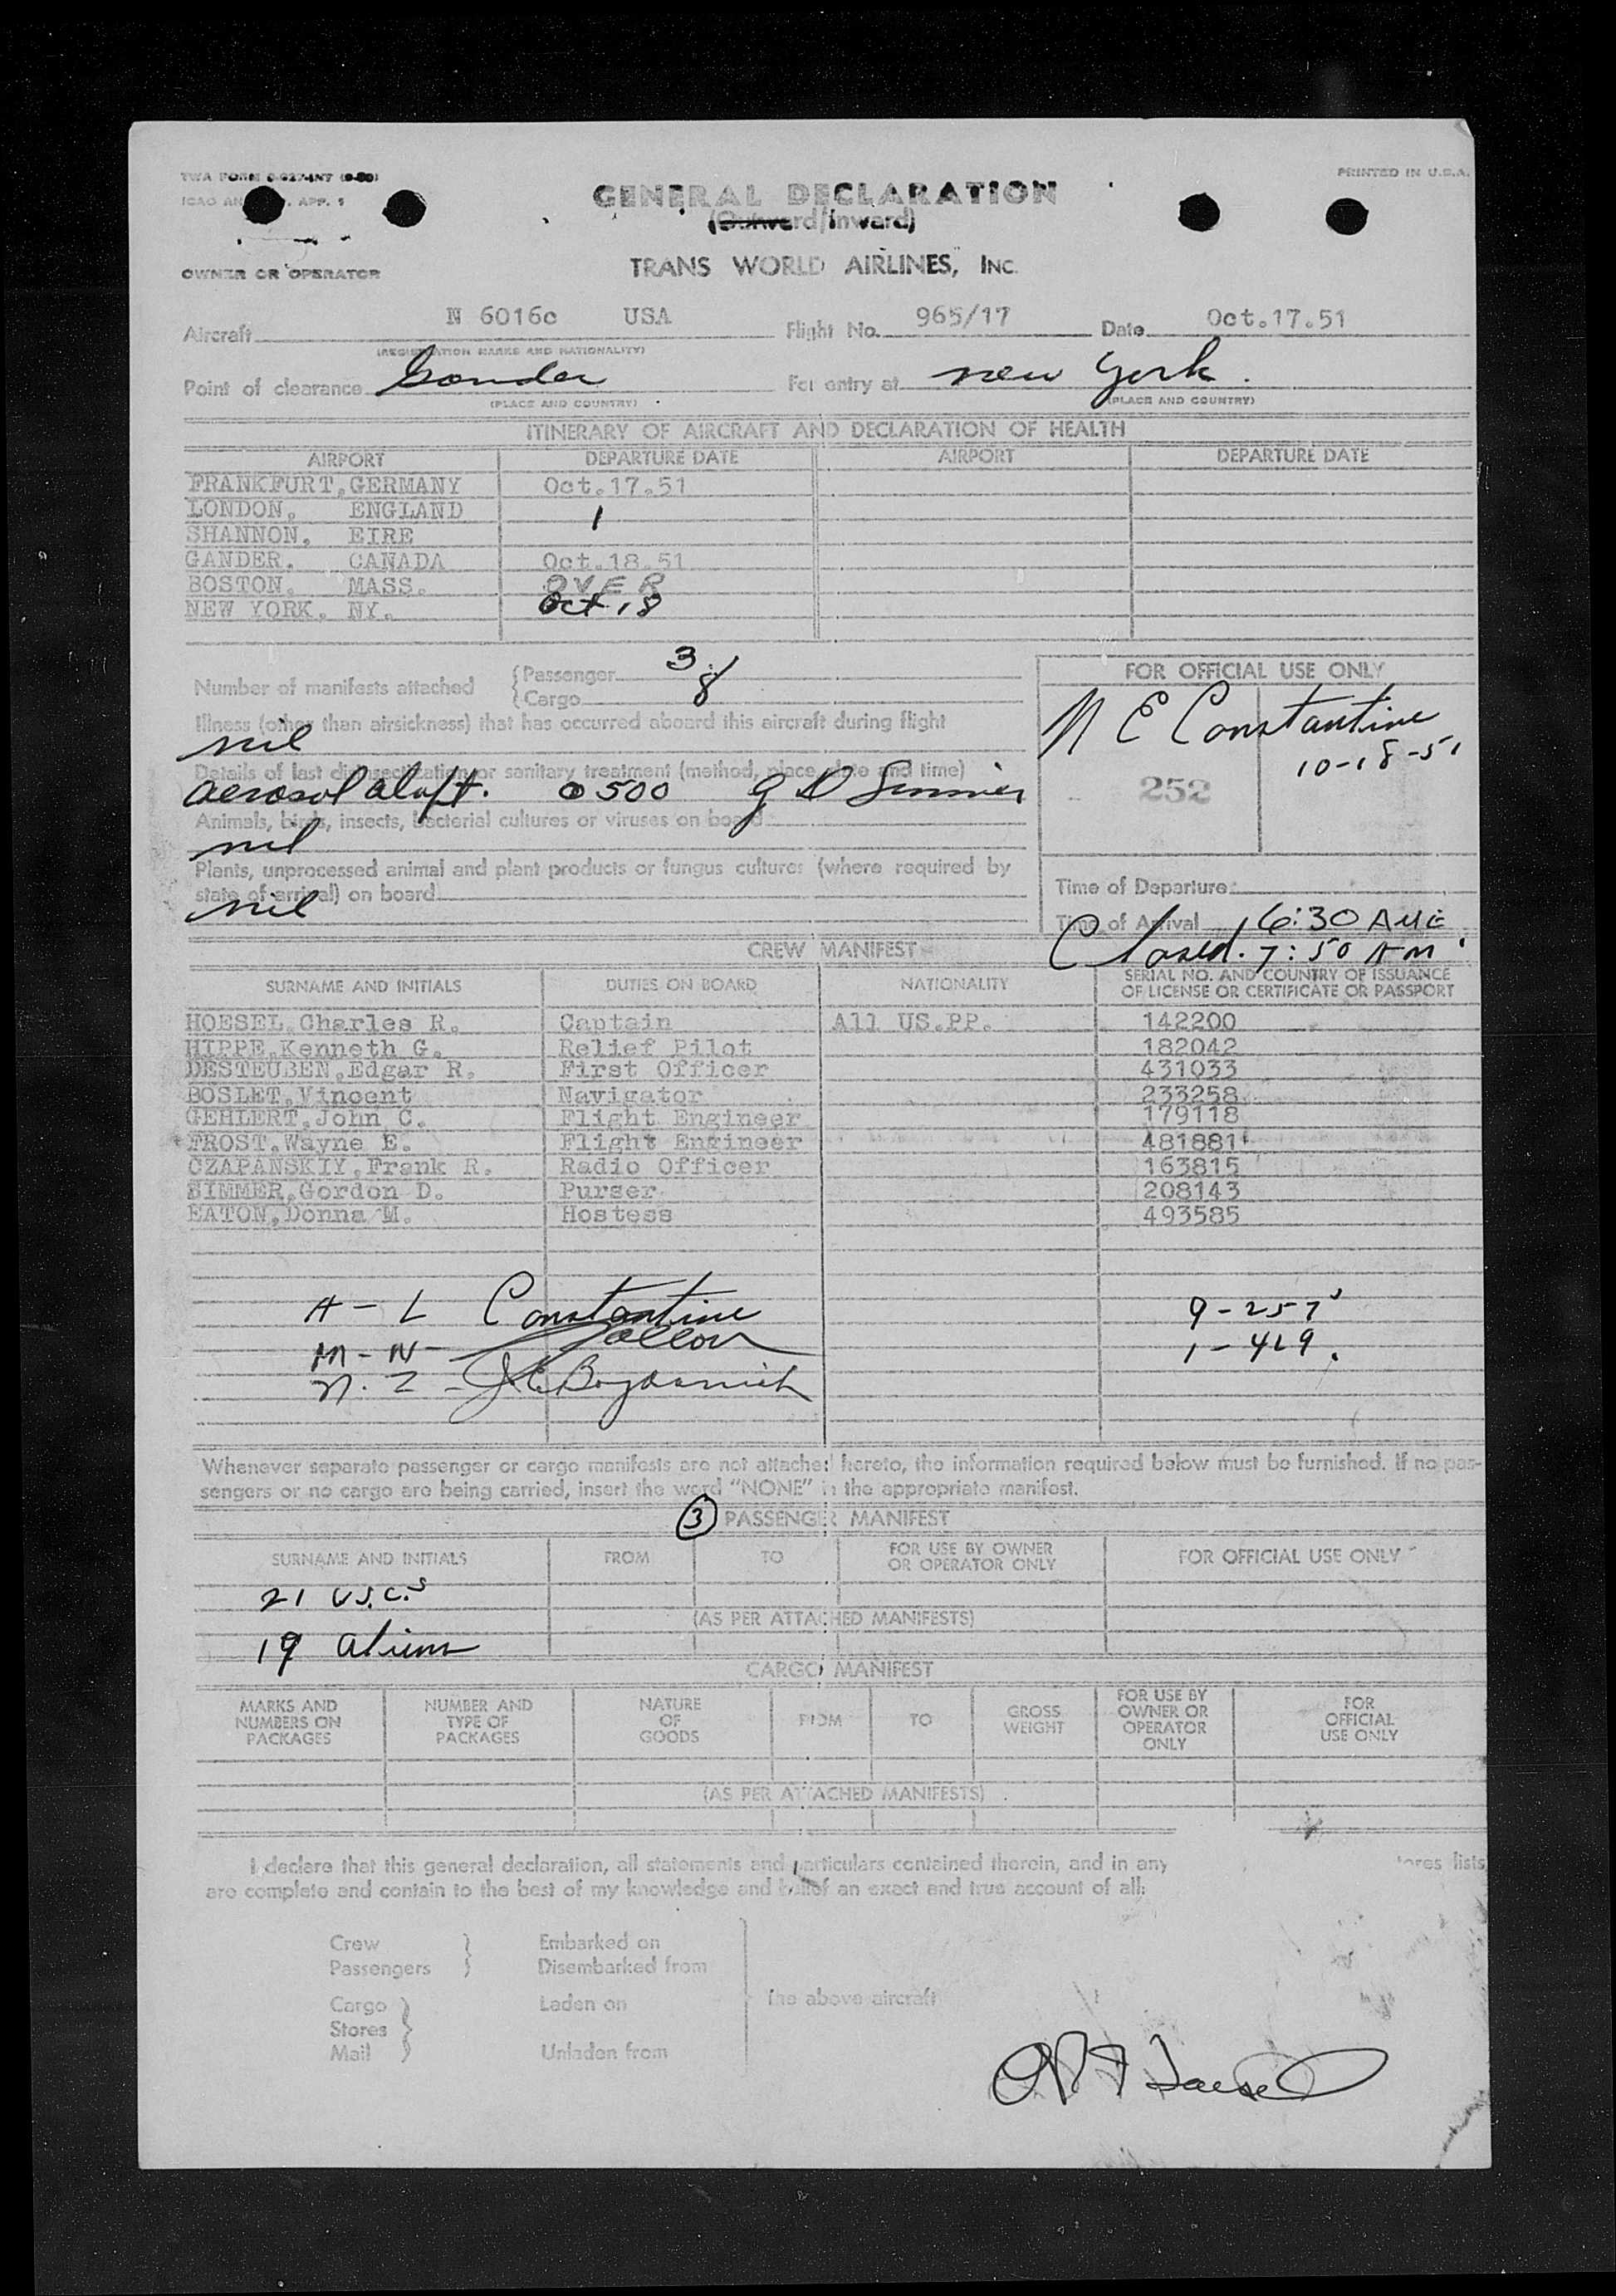 TWA FORM
PRINTED IN U.S.A.
ICAO AN APP. 5
GENERAL DECLARATION
(Outward/Inward)
OWNER OR OPERATOR
TRANS WORLD AIRLINES, INC.
Aircraft N 6016c USA Flight No. 965/17 Date Oct.17.51
(REGISTRATION MARKS AND NATIONALITY)
Point of clearance Gander For entry at new york.
(PLACE AND COUNTRY) (PLACE AND COUNTRY)
ITINERARY OF AIRCRAFT AND DECLARATION OF HEALTH
AIRPORT DEPARTURE DATE AIRPORT DEPARTURE DATE
FRANKFURT,GERMANY Oct.17.51
LONDON, ENGLAND 1
SHANNON, EIRE
GANDER, CANADA Oct.18.51
BOSTON. MASS. OVER
NEW YORK. NY. Oct 18
Number of manifests attached Passenger 3
Cargo 8
FOR OFFICIAL USE ONLY
Illness (other than airsickness) that has occurred aboard this aircraft during flight
nil
N E Constantine
10-18-51
252
Details of last disinsectization or sanitary treatment (method, place, date and time)
aerosol aloft. 0500 G D Simmer
Animals, birds, insects, bacterial cultures or viruses on board
nil
Plants, unprocessed animal and plant products or fungus cultures (where required by
state of arrival) on board
nil
Time of Departure
Time of Arrival 6:30 AM
Closed. 7:50 AM.
CREW MANIFEST
SURNAME AND INITIALS DUTIES ON BOARD NATIONALITY SERIAL NO. AND COUNTRY OF ISSUANCE
OF LICENSE OR CERTIFICATE OR PASSPORT
HOESEL,Charles R. Captain All US.PP. 142200
HIPPE,Kenneth G. Relief Pilot 182042
DESTEUBEN,Edgar R. First Officer 431033
BOSLET,Vincent Navigator 233258
GEHLERT,John C. Flight Engineer 179118
FROST,Wayne E. Flight Engineer 481881
CZAPANSKIY,Frank R. Radio Officer 163815
SIMMER,Gordon D. Purser 208143
EATON,Donna M. Hostess 493585
A - L Constantine 9-257
M - N - 1-419.
N. Z -
Whenever separate passenger or cargo manifests are not attached hereto, the information required below must be furnished. If no pas-
sengers or no cargo are being carried, insert the word "NONE" in the appropriate manifest.
3 PASSENGER MANIFEST
SURNAME AND INITIALS FROM TO FOR USE BY OWNER
OR OPERATOR ONLY FOR OFFICIAL USE ONLY
21 U.S.C.s
(AS PER ATTACHED MANIFESTS)
19 aliens
CARGO MANIFEST
MARKS AND
NUMBERS ON
PACKAGES
NUMBER AND
TYPE OF
PACKAGES
NATURE
OF
GOODS
FROM
TO
GROSS
WEIGHT
FOR USE BY
OWNER OR
OPERATOR
ONLY
FOR
OFFICIAL
USE ONLY
(AS PER ATTACHED MANIFESTS)
I declare that this general declaration, all statements and particulars contained therein, and in any tores lists
are complete and contain to the best of my knowledge and belief an exact and true account of all:
Crew Embarked on
Passengers Disembarked from
Cargo Laden on the above aircraft
Stores
Mail Unladen from